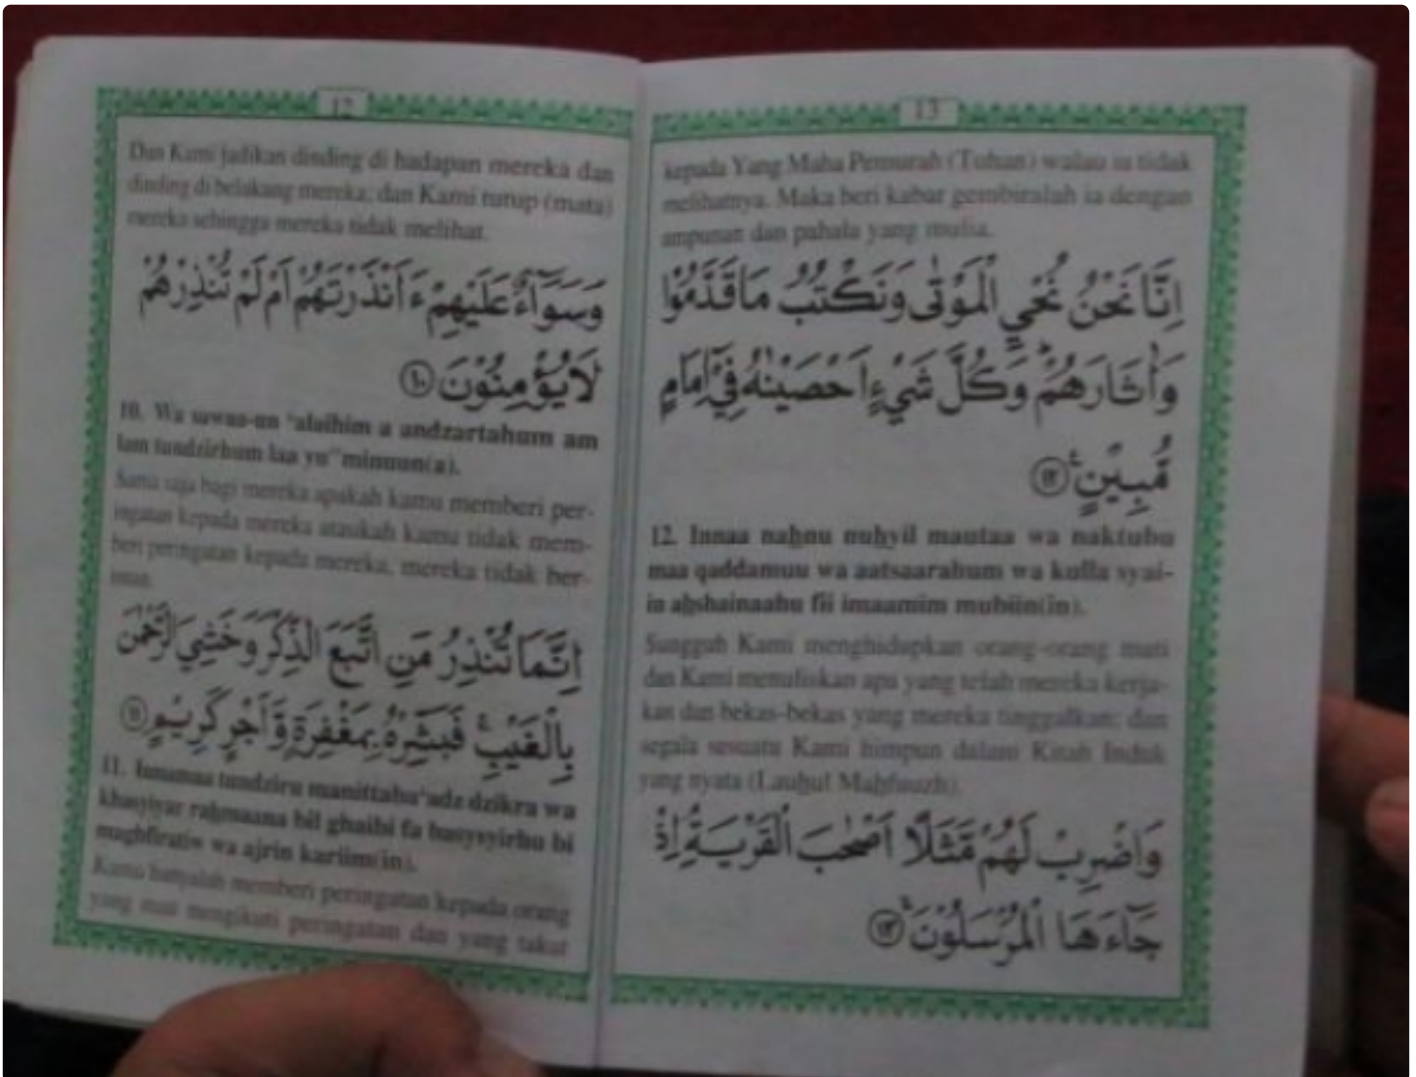 12
Dan Kami jadikan dinding di hadapan mereka dan
dinding di belakang mereka; dan Kami tutup (mata)
mereka sehingga mereka tidak melihat.
وَسَوَآءٌ عَلَيْهِمْ ءَاَنْذَرْتَهُمْ اَمْ لَمْ تُنْذِرْهُمْ
لَا يُؤْمِنُوْنَ ﴿١٠﴾
10. Wa sawaa-un ‘alaihim a andzartahum am
lam tundzirhum laa yu’'minuun(a).
Sama saja bagi mereka apakah kamu memberi per-
ingatan kepada mereka ataukah kamu tidak mem-
beri peringatan kepada mereka, mereka tidak ber-
iman.
اِنَّمَا تُنْذِرُ مَنِ اتَّبَعَ الذِّكْرَ وَخَشِيَ الرَّحْمٰنَ
بِالْغَيْبِۚ فَبَشِّرْهُ بِمَغْفِرَةٍ وَّاَجْرٍ كَرِيْمٍ ﴿١١﴾
11. Innamaa tundziru manittaba‘adz dzikra wa
khasyiyar rahmaana bil ghaibi fa basysyirhu bi
maghfiratiw wa ajrin kariim(in).
Kamu hanyalah memberi peringatan kepada orang
yang mau mengikuti peringatan dan yang takut
13
kepada Yang Maha Pemurah (Tuhan) walau ia tidak
melihatnya. Maka beri kabar gembiralah ia dengan
ampunan dan pahala yang mulia.
اِنَّا نَحْنُ نُحْيِ الْمَوْتٰى وَنَكْتُبُ مَا قَدَّمُوْا
وَاٰثَارَهُمْۗ وَكُلَّ شَيْءٍ اَحْصَيْنٰهُ فِيْٓ اِمَامٍ
مُّبِيْنٍۚ ﴿١٢﴾
12. Innaa nahnu nuhyil mautaa wa naktubu
maa qaddamuu wa aatsaarahum wa kulla syai-
in ahshainaahu fii imaamim mubiin(in).
Sungguh Kami menghidupkan orang-orang mati
dan Kami menuliskan apa yang telah mereka kerja-
kan dan bekas-bekas yang mereka tinggalkan; dan
segala sesuatu Kami himpun dalam Kitab Induk
yang nyata (Lauhul Mahfuuzh).
وَاضْرِبْ لَهُمْ مَّثَلًا اَصْحٰبَ الْقَرْيَةِۘ اِذْ
جَآءَهَا الْمُرْسَلُوْنَۚ ﴿١٣﴾